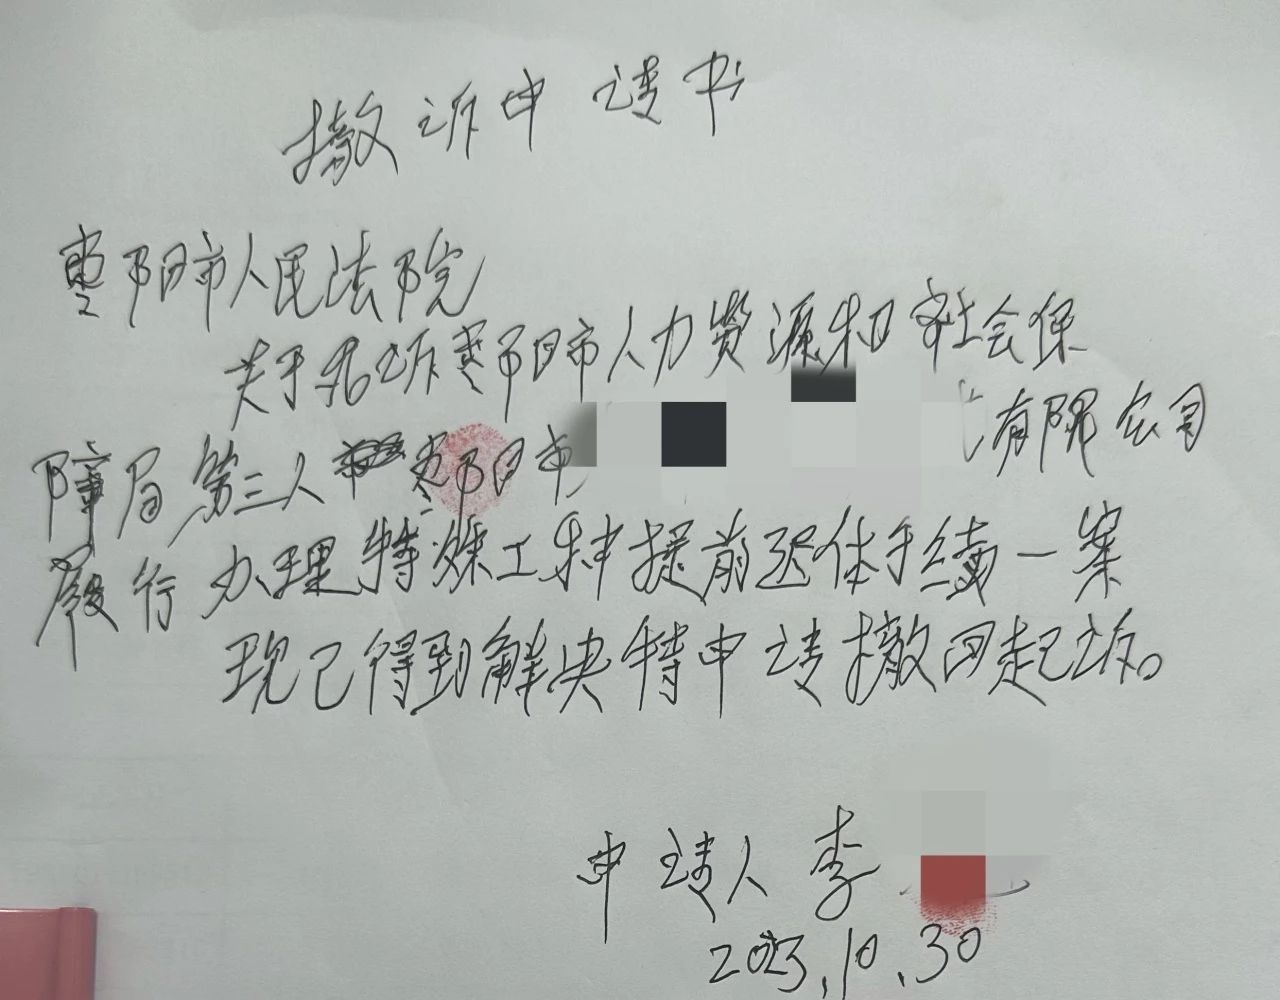 撤诉申请书
枣阳市人民法院
关于起诉枣阳市人力资源和社会保
障局第三人枣阳市 有限公司
履行办理特殊工种提前退休手续一案
现已得到解决特申请撤回起诉。
申请人李
2023.10.30